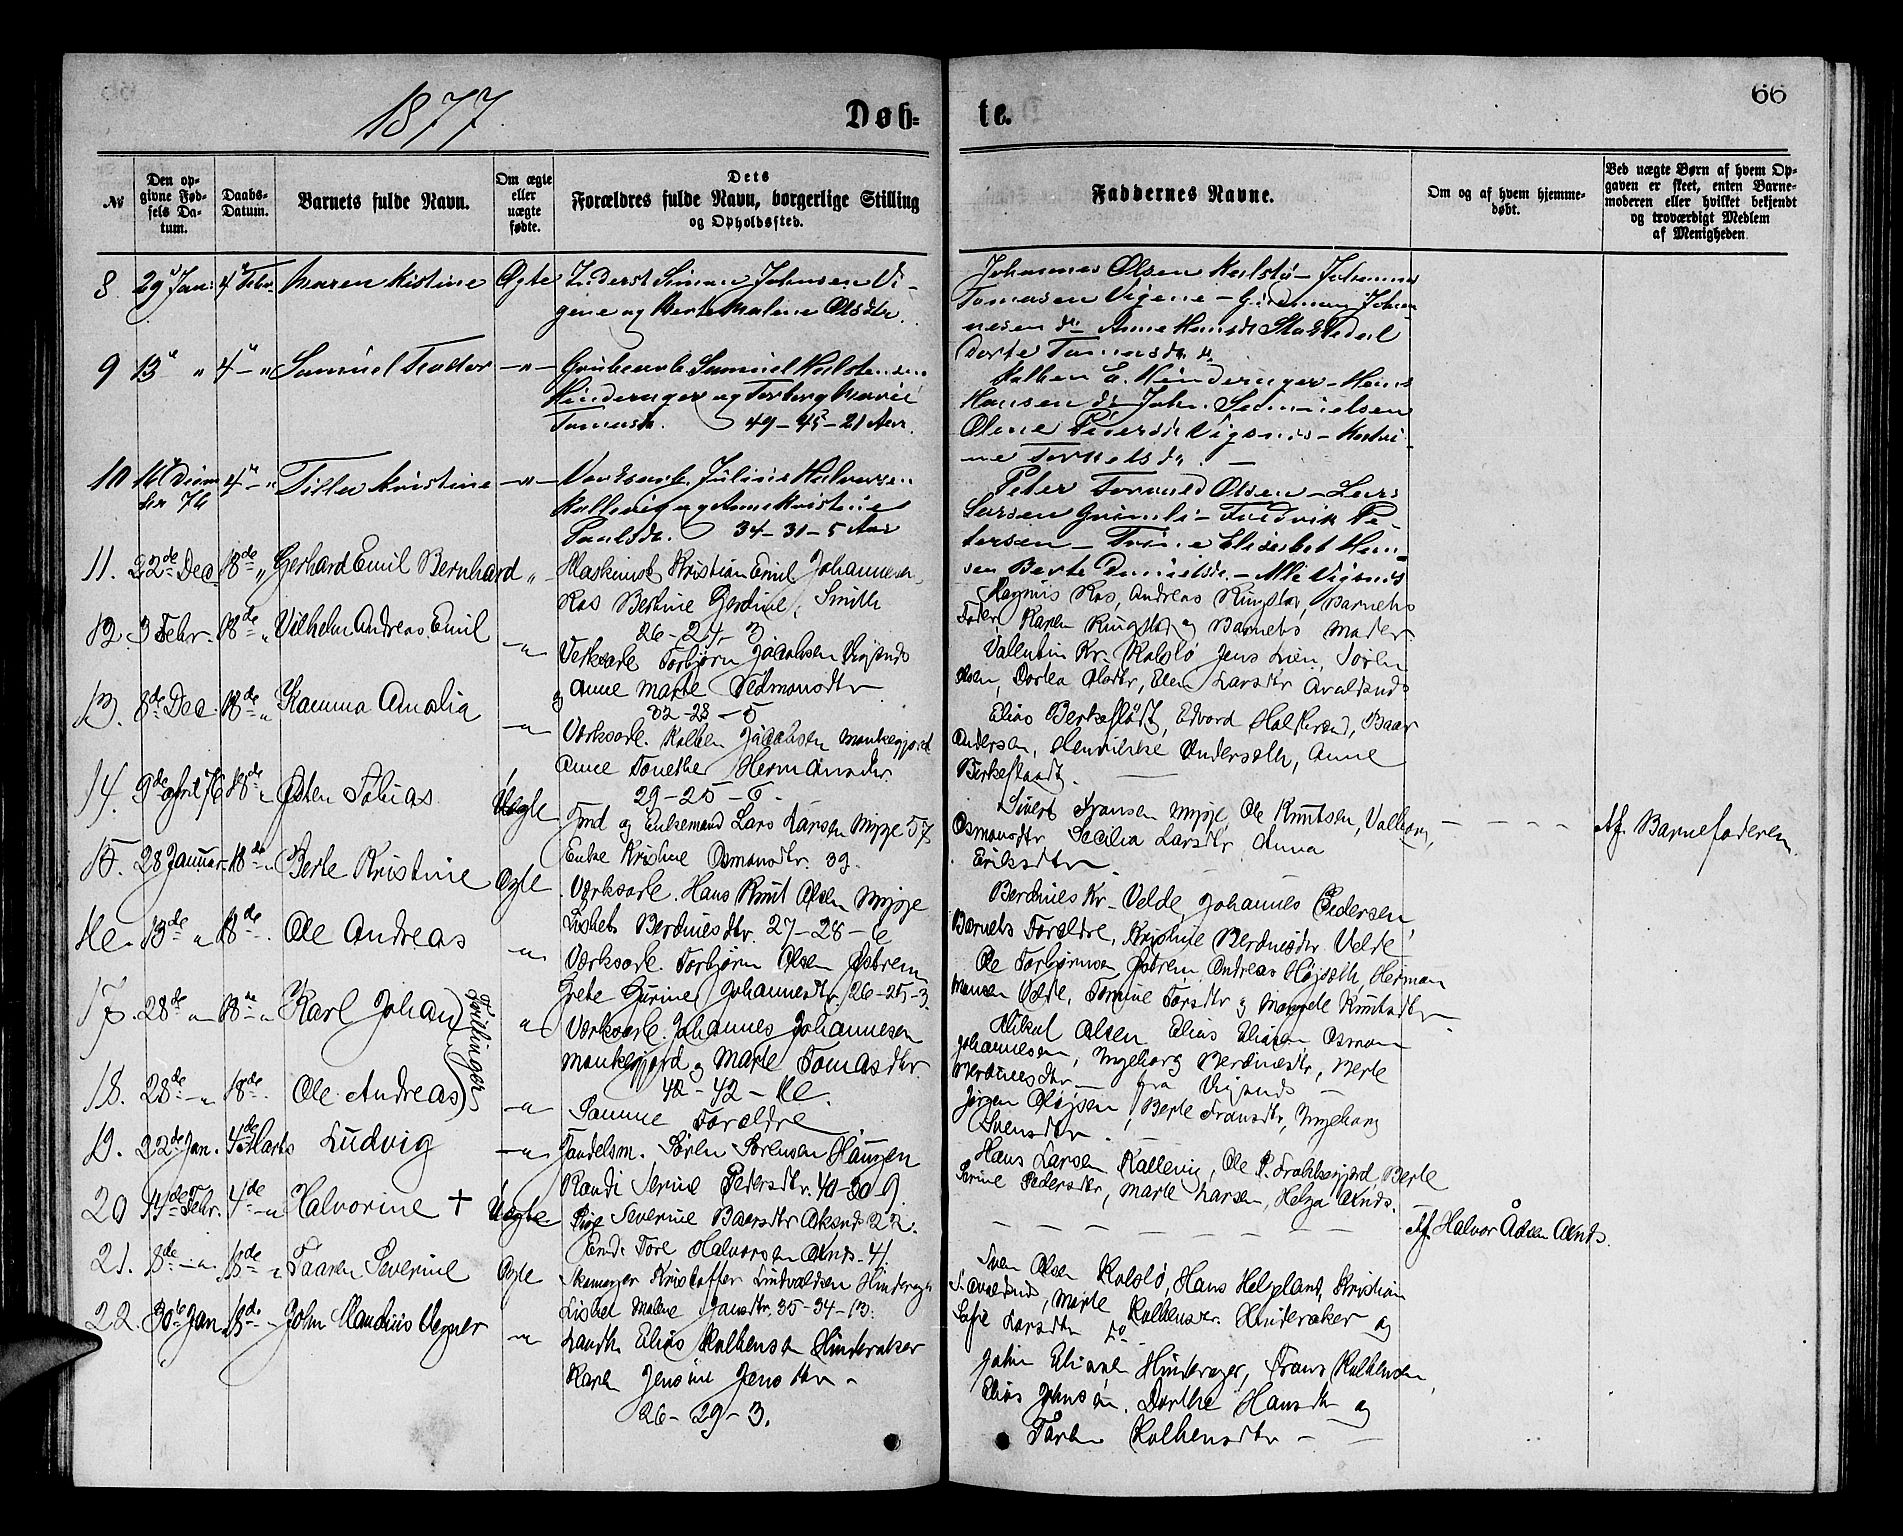 1877
Døb=
te.
66
№
Den op-
givne Fød-
sels Da-
tum.
Daabs-
Datum.
Barnets fulde Navn.
Om ægte
eller
uægte
fødte.
Dets
Forældres fulde Navn, borgerlige Stilling
og Opholdssted.
Faddernes Navne.
Om og af hvem hjemme-
døbt.
Ved uægte Børn af hvem Op-
gaven er skeet, enten Barne-
moderen eller hvilket bekjendt
og troværdigt Medlem
af Menigheden.
8 29 Jan: 4 Febr. Maren Kistine Ægte Inderst Simon Johnsen Vi-
gene og Berte Malene Olsdtr.
Johannes Olsen Kolstø - Johannes
Tomasen Vigene - Gudmun Johan
nesen do Anne Hansdr Stakkedal
Dorte Tomasdr do
9 13 " 4 - " Samuel Teodor -"- Grubearb. Samuel Kolbensen
Hinderager og Torborg Marie
Tomasdr. 49 - 45 - 21 Aar.
Kolben E. Hinderager - Hans
Hansen do John Samuelsen
Olene Pedersdr Vigsnes - Kathri-
ne Torkelsdr. -
10 16 Decem 4 - " Tilla Kristine -"- Verksarb. Julius Halvorsen
ber 76
Kallevig og Anne Kristine
Paulsdr. 34 - 31 - 5 Aar
Peter Torvald Olsen - Lars
Larsen Grimli - Fredrik Pe-
tersen - Trine Elisabet Han-
sen Berte Danielsdr. - Alle Vigsnes
11. 22de Dec. 18de " Gerhard Emil Bernhard " Maskinist Kristian Emil Johannesen
Ros Bertine Gerdine Smith
26 - 24 - 3
Magnus Ros, Andreas Ringstad, Barnets
Fader, Karen Ringstad og Barnets Moder
12. 3 Febr. 18de " Vilhelm Andreas Emil -"- Verksarb. Torbjørn Jacobsen Vigsnes
og Anne Marte Sedmonsdtr
32 - 28 - 5
Valentin Kr. Kolstø Jens Lien, Søren
Olsen, Dorlea Olsdtr, Elen Larsdtr Avaldsnes
13. 8de Dec. 18de " Kamma Amalia -"- Værksarb. Kolben Jacobsen Munkegjerd
Anne Tonethe Hermansdtr
29 - 25 - 6.
Elias Berkefledt, Edvard Halkensed, Baar
Andersen, Henrikke Andersdtr, Anne
Berkeflaadt. -
14. 9de April 76 18de " Østen Tobias Uægte Gmd og Enkemand Lars Larsen Mygje 57
Enke Kristine Osmonsdtr. 39.
Sivert Fransen Mygje, Ole Knutsen, Valborg
Osmonsdtr Sæcilia Larsdtr Anna
Eriksdtr.
Af Barnefaderen.
15. 28 Januar. 18de " Berte Kristine Ægte Værksarb. Hans Knut Olsen Mygje
Lisbet Berdinesdtr. 27 - 28 - 6
Berdines Kr. Velde, Johannes Pedersen,
Barnets Forældre, Kristine Berdinesdtr Velde
16 13de " 18de. Ole Andreas -"- Værksarb. Torbjørn Olsen Østrem
Grete Gurine Johannesdtr. 26 - 25 - 3
Ole Torbjørnsen Østrem, Andreas Højseth, Herman
Monsen Velde, Tomine Torsdtr og Margrete Knutsdtr
17. 28de " 18de " Karl Johan " Værksarb. Johannes Johannesen
Munkegjerd og Marte Tomasdtr
42 - 42 - 16.
Tvillinger
Mikal Olsen, Elias Eliasen Osmon
Johannesen, Ingeborg Berdinesdtr, Berte
Berdinesdtr - fra Vigsnes
18. 28de - " 18de. Ole Andreas -"- Samme Forældre
Jørgen Olsjsen, Berte Fransdtr, Ingeborg
Svensdtr. -
19. 22de Jan. 4de Marts Ludvig -"- Handelsm. Søren Sørensen Haugen
Randi Serine Pedersdtr. 40 - 30 - 9.
Hans Larsen Kallevig, Ole P. Trohkegjerd, Berte
Serine Pedersdtr, Marte Larsen, Helga Aknds.
20 14de Febr. 4de - " Halvorine + Uægte Pige Severine Baarsdtr Aksnds 22.
Enk. Tore Halvorsen Aknds. 41.
Af Halvor Ådsen Aknds.
21. 8de - " 18de " Taaren Severine Ægte Skomager Kristoffer Lindvaldsen Hinderager
Lisbet Malene Jansdtr. 35 - 34 - 13.
Sven Olsen Kolstø, Hans Helgeland, Kristian
S. Avaldsnes, Marte Kolbensdtr. Hinderaker og
Sofie Larsdtr do
22. 30te Jan. 18de " John Klaudius Vegner -"- Landh. Elias Kolbensen Hinderaker
Karen Jensine Jensdtr -
26 - 29 - 3.
John Eliasen Hinderager, Frans Kolbensen,
Elias Johnsen. Dorthe Hansdtr og
Tårbør Kolbensdtr -